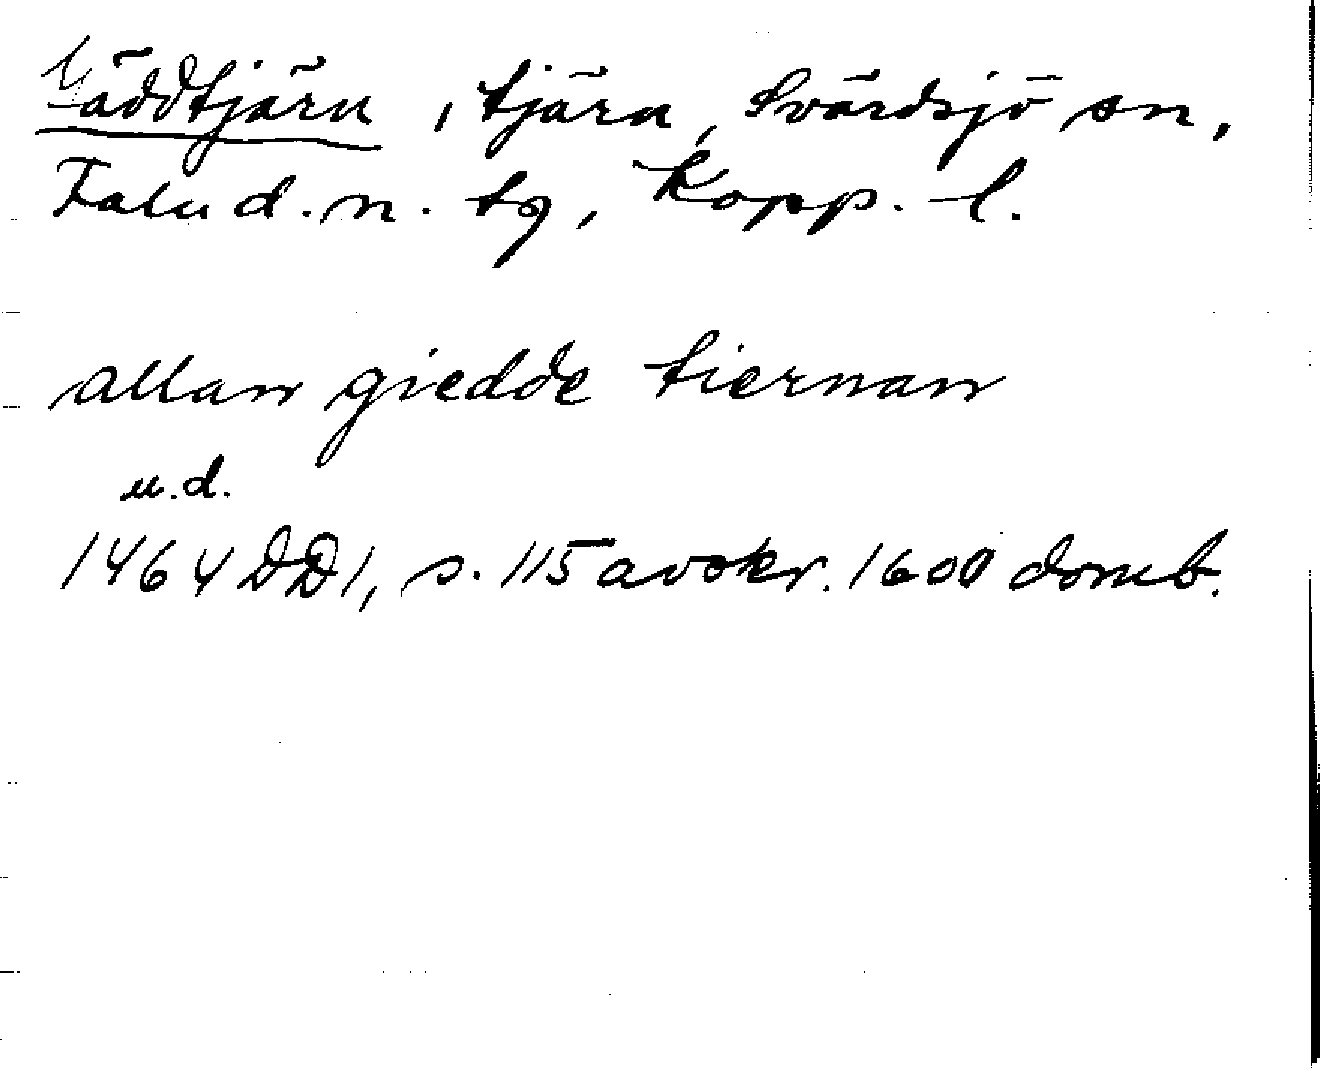 Gäddtjärn, tjärn, Svärdsjö sn,
Falu d. n. tg, Kopp. l.
allan giedde tiernan
u.d.
1464 DD1, s. 115 avskr. 1600 domb.